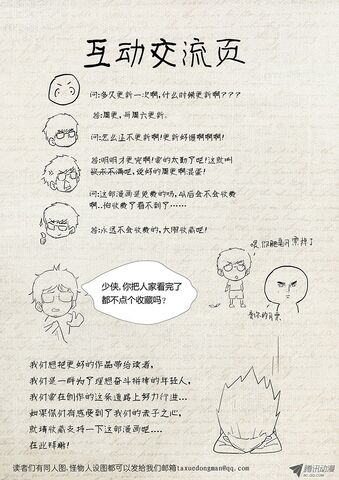 互动交流页
问:多久更新一次啊,什么时候更新啊???
答:周更,每周六更新.
问:怎么还不更新啊!更新好慢啊啊啊!
答:明明才更完啊!你的太勤了吧!这就叫
欲求不满吧,说好的周更啊混蛋!
问:这部漫画是免费的吗,以后会不会收费
啊..怕收费了看不到了……
答:永远不会收费的,大胆收藏吧!
少侠,你把人家看完了
都不点个收藏吗?
我们想把更好的作品带给读者,
我们是一群为了理想奋斗拼搏的年轻人,
我们会在创作的这条道路上努力行进...
如果你们有感受到了我们的赤子之心,
就请收藏支持一下这部漫画吧....
在此拜谢!
读者们有同人图,怪物人设图都可以发给我们邮箱taxuedongman@qq.com
腾讯动漫
AC.QQ.COM